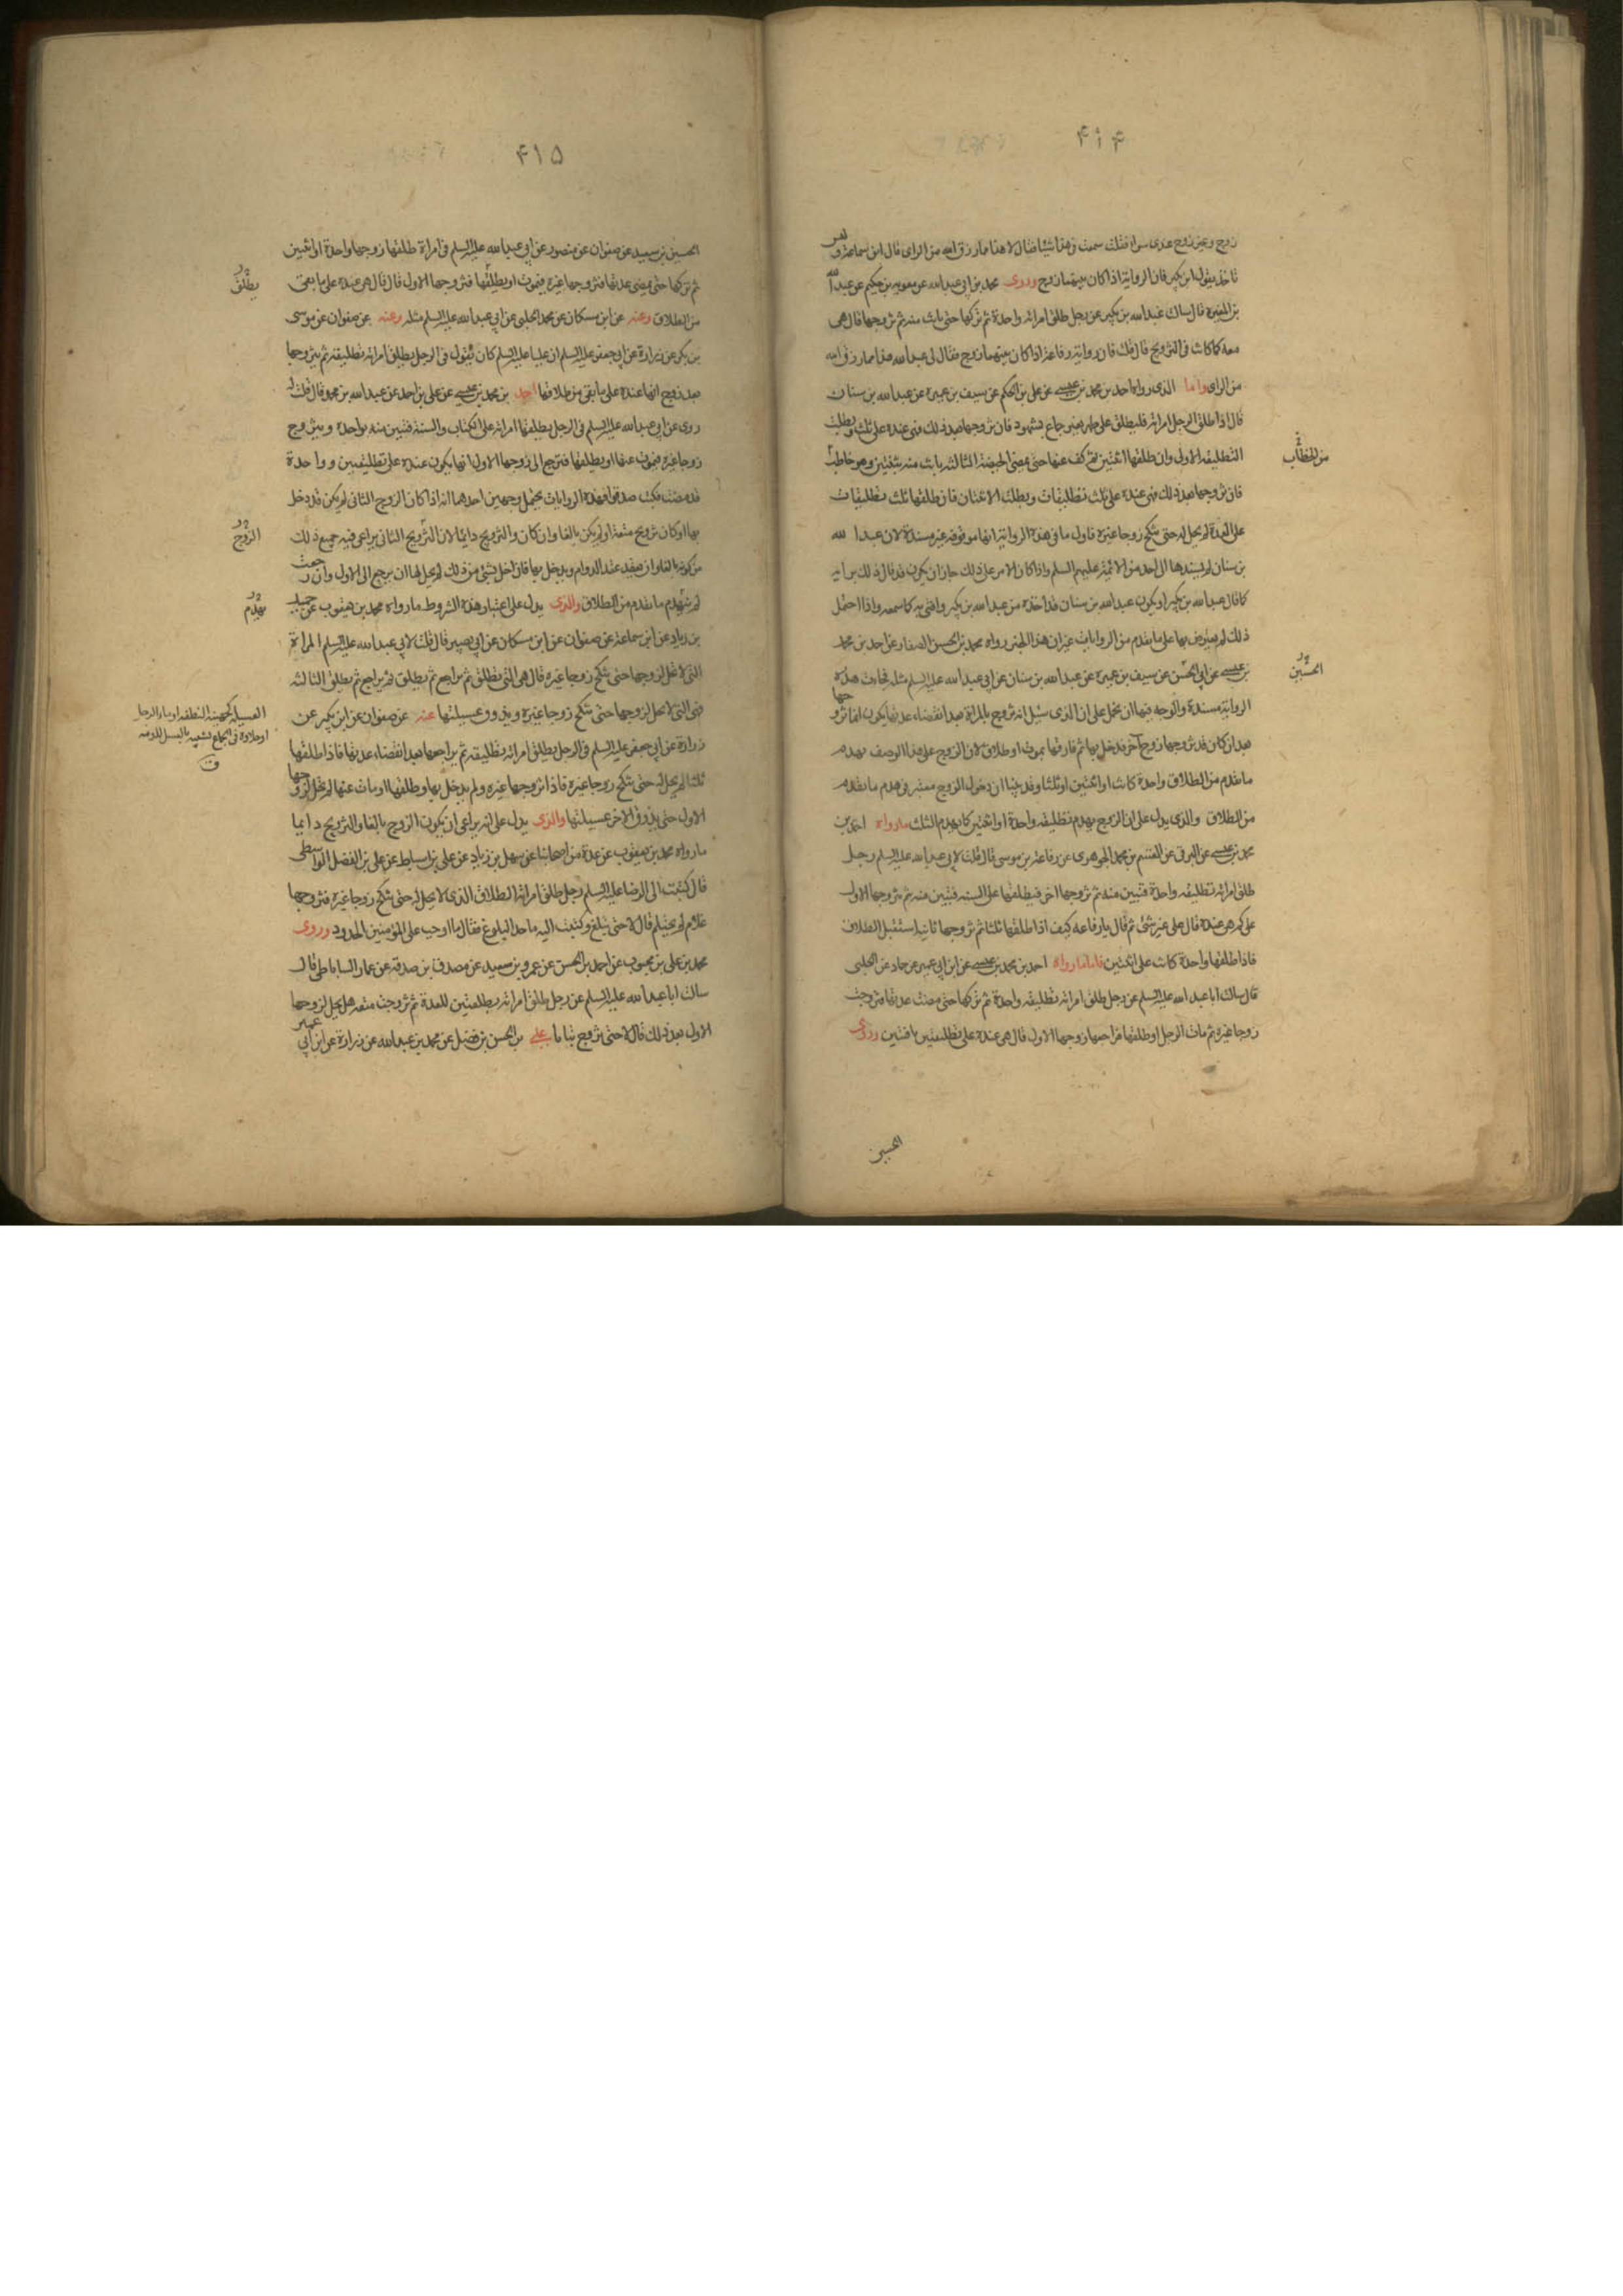 ۴۱۴
زوج وغير زوج عندى سواء فقلت سمعت فى هذا شيئا فقال لا هذا مما رزق الله من الراى قال ابن سماعة وليس
ناخذ بقول ابن بكير فان الرواية اذا كان بينهما زوج وروى محمد بن ابى عبدالله عن معوية بن حكيم عن عبدالله
بن المغيرة قال سالت عبدالله بن بكير عن رجل طلق امراته واحدة ثم تركها حتى بانت منه ثم تزوجها قال هى
معه كما كانت فى التزويج قال قلت فان رواية رفاعة اذا كان بينهما زوج فقال لى عبدالله هذا مما رزق الله
من الراى واما الذى رواه احمد بن محمد بن عيسى عن على بن الحكم عن سيف بن عميرة عن عبدالله بن سنان
قال اذا طلق الرجل امراته فليطلق على طهر بغير جماع بشهود فان تزوجها بعد ذلك فهى عنده على ثلث وبطلت
التطليقة الاولى وان طلقها اثنتين ثم كف عنها حتى تمضى الحيضة الثالثة بانت منه بثنتين وهو خاطب
من الخطاب
فان تزوجها بعد ذلك فهى عنده على ثلث تطليقات وبطلت الاثنتان فان طلقها ثلث تطليقات
على العدة لم يحل له حتى تنكح زوجا غيره فاول ما فى هذه الرواية انها موقوفة غير مسندة لان عبدالله
بن سنان لم يسندها الى احد من الائمة عليهم السلم واذا كان الامر على ذلك جاز ان يكون قد قال ذلك برايه
كما قال عبدالله بن بكير او يكون عبدالله بن سنان قد اخذه من عبدالله بن بكير وافتى به كما سمعه واذا احتمل
ذلك لم يعترض بها على ما تقدم من الروايات غير ان هذا الخبر رواه محمد بن الحسن الصفار عن احمد بن محمد
بن عيسى عن ابى الحسن عن سيف بن عميرة عن عبدالله بن سنان عن ابى عبدالله عليه السلم مثله فجاءت هذه
الحسين
الرواية مسندة والوجه فيها ان تحمل على ان الذى سئل انه تزوج بالمراة بعد انقضاء عدتها يكون انما تزوجها
بعد ان كان قد تزوجها زوج آخر قد دخل بها ثم فارقها بموت او طلاق لان الزوج على هذا الوصف يهدم
ما تقدم من الطلاق واحدة كانت او اثنتين او ثلثا وقد بينا ان دخول الزوج معتبر فى هدم ما تقدم
من الطلاق والذى يدل على ان الزوج يهدم تطليقة واحدة او اثنتين كما يهدم الثلث ما رواه احمد بن
محمد بن عيسى عن البرقى عن القسم بن محمد الجوهرى عن رفاعة بن موسى قال قلت لابى عبدالله عليه السلم رجل
طلق امراته تطليقة واحدة فتبين منه ثم تزوجها اخر فيطلقها على السنة فتبين منه ثم تزوجها الاول
على كم هى عنده قال على غير شئ ثم قال يا رفاعة كيف اذا طلقها ثلثا ثم تزوجها ثانية استقبل الطلاق
فاذا طلقها واحدة كانت على اثنتين فاما ما رواه احمد بن محمد بن عيسى عن ابن ابى عمير عن حماد عن الحلبى
قال سالت ابا عبدالله عليه السلم عن رجل طلق امراته تطليقة واحدة ثم تركها حتى مضت عدتها فتزوجت
زوجا غيره ثم مات الرجل او طلقها فراجعها زوجها الاول قال هى عنده على تطليقتين باقيتين وروى
الحسين
۴۱۵
الحسين بن سعيد عن صفوان عن منصور عن ابى عبدالله عليه السلم فى امراة طلقها زوجها واحدة او اثنتين
ثم تركها حتى تمضى عدتها فتزوجها غيره فيموت او يطلقها فتزوجها الاول قال قال هى عنده على ما بقى
من الطلاق وعنه عن ابن مسكان عن محمد الحلبى عن ابى عبدالله عليه السلم مثله وعنه عن صفوان عن موسى
بن بكر عن زرارة عن ابى جعفر عليه السلم ان عليا عليه السلم كان يقول فى الرجل يطلق امراته تطليقة ثم يتزوجها
بعد زوج انها عنده على ما بقى من طلاقها احمد بن محمد بن عيسى عن على بن احمد عن عبدالله بن محمد قال قلت له
روى عن ابى عبدالله عليه السلم فى الرجل يطلقها امراته على الكتاب والسنة فتبين منه بواحدة وتتزوج
زوجا غيره فيموت عنها او يطلقها فترجع الى زوجها الاول انها يكون عنده على تطليقتين وواحدة
قد مضت فكتب صدقوا فهذه الروايات يحتمل وجهين احدهما انه اذا كان الزوج الثانى لم يكن قد دخل
بها او كان تزوج متعة او لم يكن بالغا وان كان والتزويج دائما لان التزويج الثانى يراعى فيه جميع ذلك
الزوج
من كونه بالغا وان يعقد عقد الدوام ويدخل بها فان اخل بشئ من ذلك لم يحل لها ان يرجع الى الاول وان رجعت
لم ينهدم ما تقدم من الطلاق والذى يدل على اعتبار هذه الشروط ما رواه محمد بن يعقوب عن حميد
يهدم
بن زياد عن ابن سماعة عن صفوان عن ابن مسكان عن ابى بصير قال قلت لابى عبدالله عليه السلم المراة
التى لا تحل لزوجها حتى تنكح زوجا غيره قال هى التى تطلق ثم تراجع ثم يطلق ثم يراجع ثم يطلق الثالثة
فهى التى لا يحل لزوجها حتى تنكح زوجا غيره ويذوق عسيلتها عنه عن صفوان عن ابن بكير عن
زرارة عن ابى جعفر عليه السلم فى الرجل يطلق امراته تطليقة ثم يراجعها بعد انقضاء عدتها فاذا طلقها
ثلثا لم يحل له حتى تنكح زوجا غيره فاذا تزوجها غيره ولم يدخل بها وطلقها او مات عنها لم تحل لزوجها
الاول حتى يذوق الاخر عسيلتها والذى يدل على انه يراعى ان يكون الزوج بالغا والتزويج دائما
ما رواه محمد بن يعقوب عن عدة من اصحابنا عن سهل بن زياد عن على بن اسباط عن على بن الفضل الواسطى
قال كتبت الى الرضا عليه السلم رجل طلق امراته الطلاق الذى لا يحل له حتى تنكح زوجا غيره فتزوجها
غلام لم يحتلم قال لا حتى يبلغ وكتبت اليه ما حد البلوغ فقال ما اوجب على المؤمنين الحدود وروى
محمد بن على بن محبوب عن احمد بن الحسن عن عمرو بن سعيد عن مصدق بن صدقة عن عمار الساباطى قال
سالت ابا عبدالله عليه السلم عن رجل طلق امراته تطليقتين للعدة ثم تزوجت متعة هل يحل لزوجها
الاول بعد ذلك قال لا حتى تزوج بتاتا على بن الحسن بن فضال عن محمد بن عبدالله عن زرارة عن ابن ابى عمير
يطلق
العسيلة كجهينة النطفة او ماء الرجل
او حلاوة فى الجماع تشبيه بالعسل للذته
ق